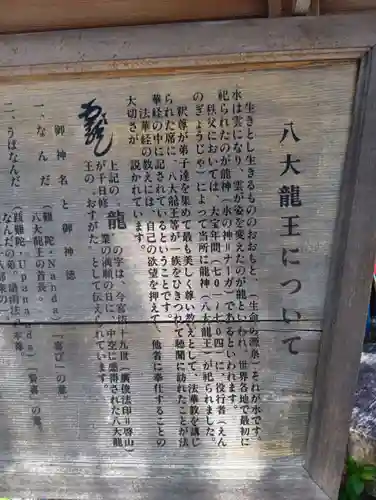 八大龍王について
生きとし生きるもののおおもと、生命の源泉、それが水です。
水は雲になり、雲が姿を変えたのが龍といわれ、世界各地で最初に
祀られたのが龍神（水の神＝ナーガ）であるといわれます。
秩父においては、大宝年間（七〇一～七〇四）に、役行者（えん
のぎょうじゃ）によって当所に龍神（八大龍王）が祀られました。
釈尊が弟子達を集めて最も美しく尊い教えとして、法華教を講じ
られた席に、八大龍王等が一族をひきつれて聴聞に訪れたことが法
華経の中に記されているということです。
法華経の教えには、自己の欲望を押えて、他者に奉仕することの
大切さが、説かれています。
上記の、龍 の字は、今宮坊十九世（廣俊法印＝原山）
が千日修業の満願の日に、中空に感得された八大龍
王の、おすがた、として伝えられています。
御神名と御神徳
一、なんだ（難陀、Nanda）「喜び」の意。
（八大龍王の首長。）
二、うばなんだ（跋難陀、Upananda）「賢喜」の意。